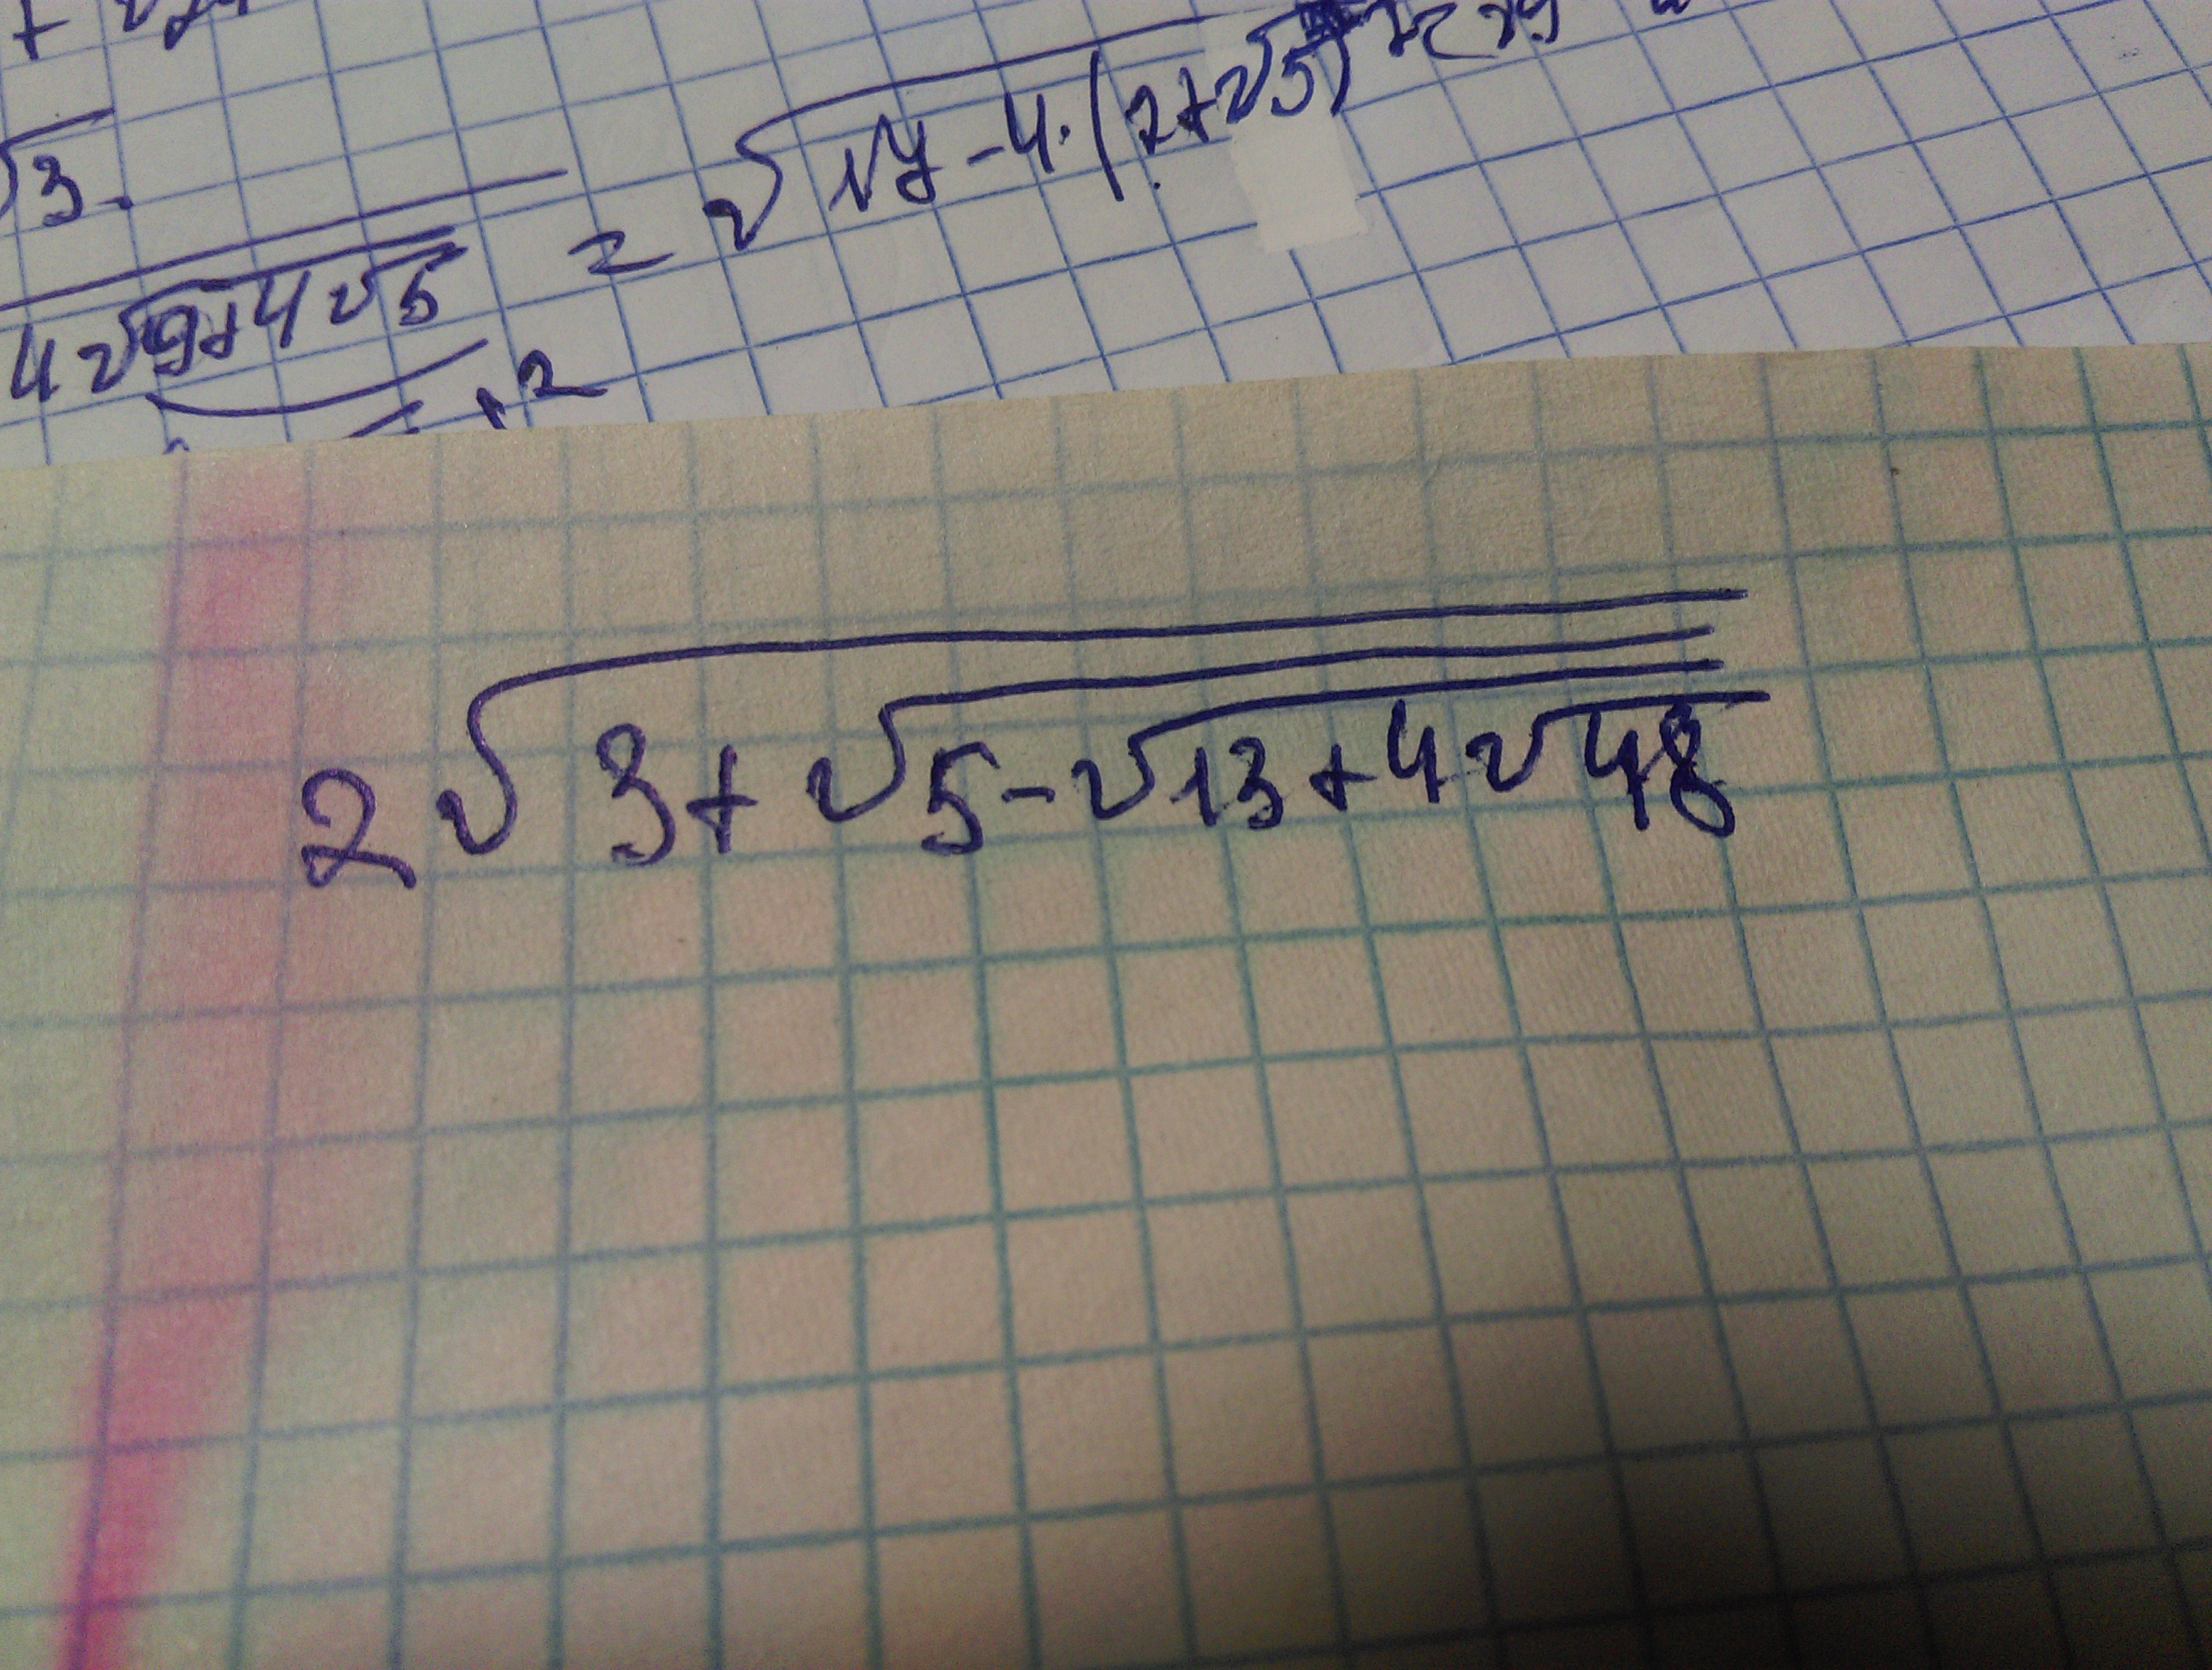 √3.
4√9+4√5 = √17-4·(2+√5)
2√3+√5-√13+4√48